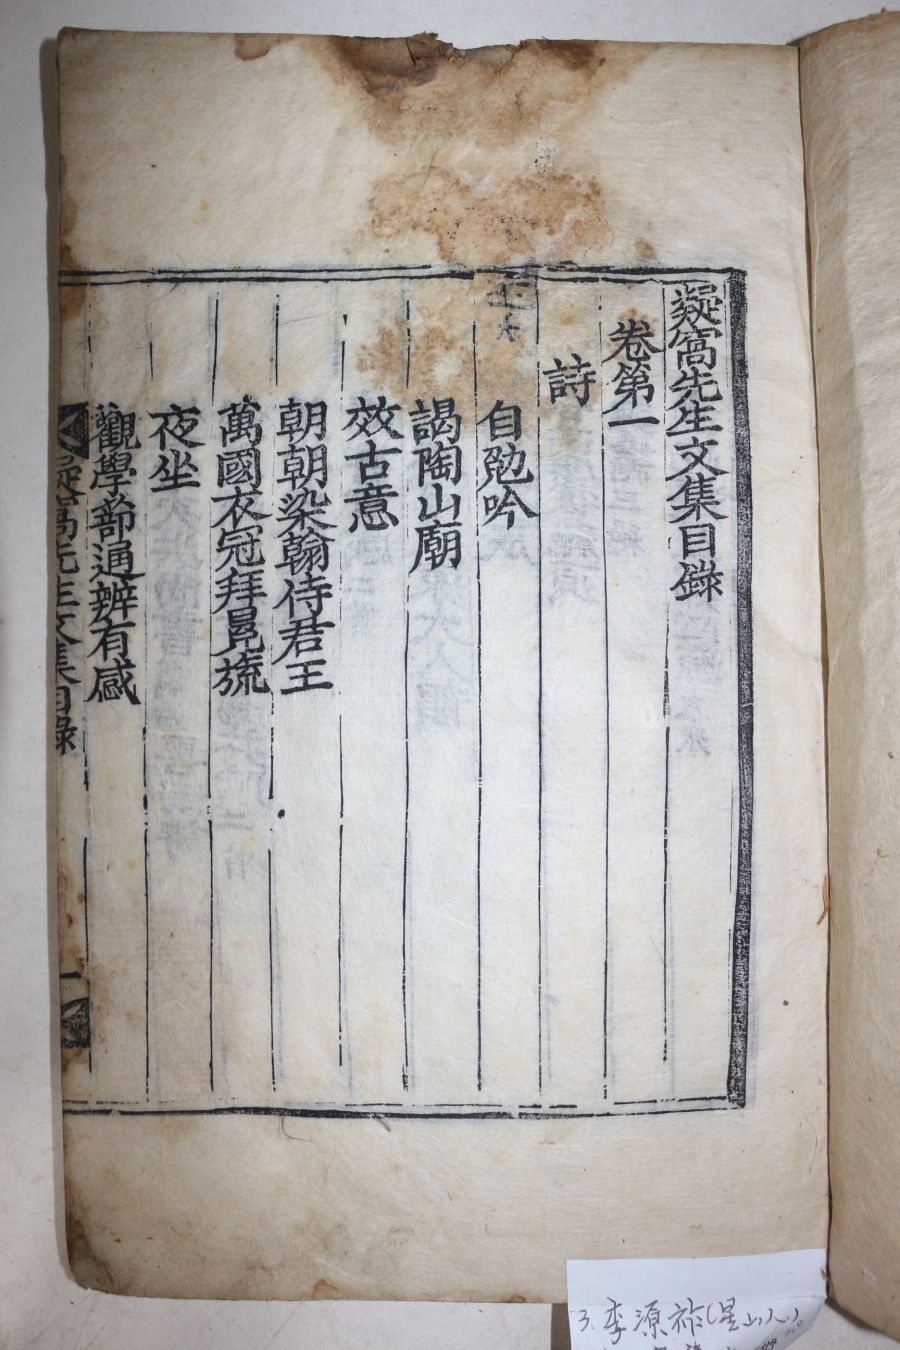 凝窩先生文集目錄
卷第一
詩
自勉吟
謁陶山廟
效古意
朝朝染翰侍君王
萬國衣冠拜冕旒
夜坐
觀學蔀通辨有感
凝窩先生文集目錄
一
3. 李源祚(星山人)